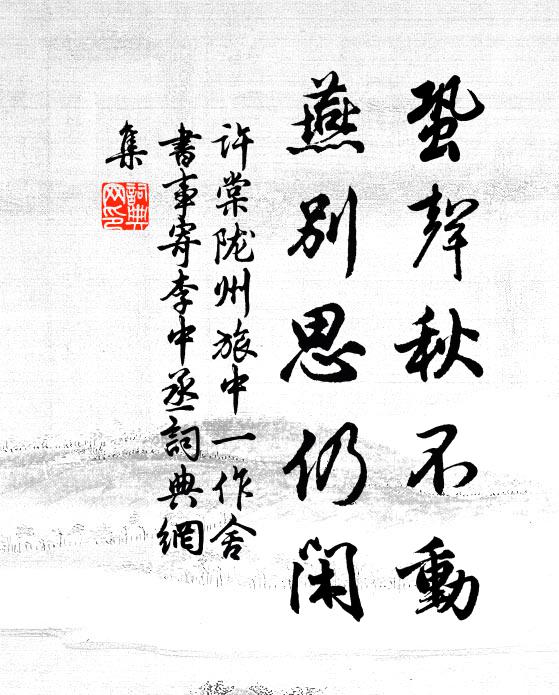 蛩聲秋不動
燕別思仍閑
許棠陇州旅中一作舍
書事寄李中丞詞典網
集
詞典
网印